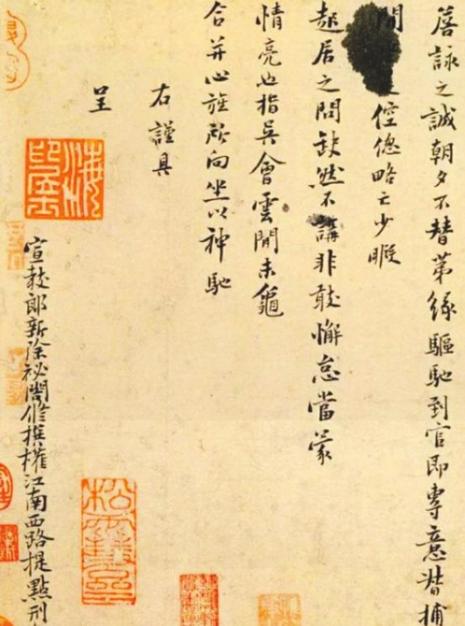 蓄詠之誠朝夕不替第緣驅馳到官即專意督捕
倥傯略亡少暇
起居之問缺然不講非敢懈怠當蒙
情亮也指吳會雲間未龜
合并心旌所向坐以神馳
右謹具
呈
宣敎郎新除祕閣修撰權江南西路提點刑